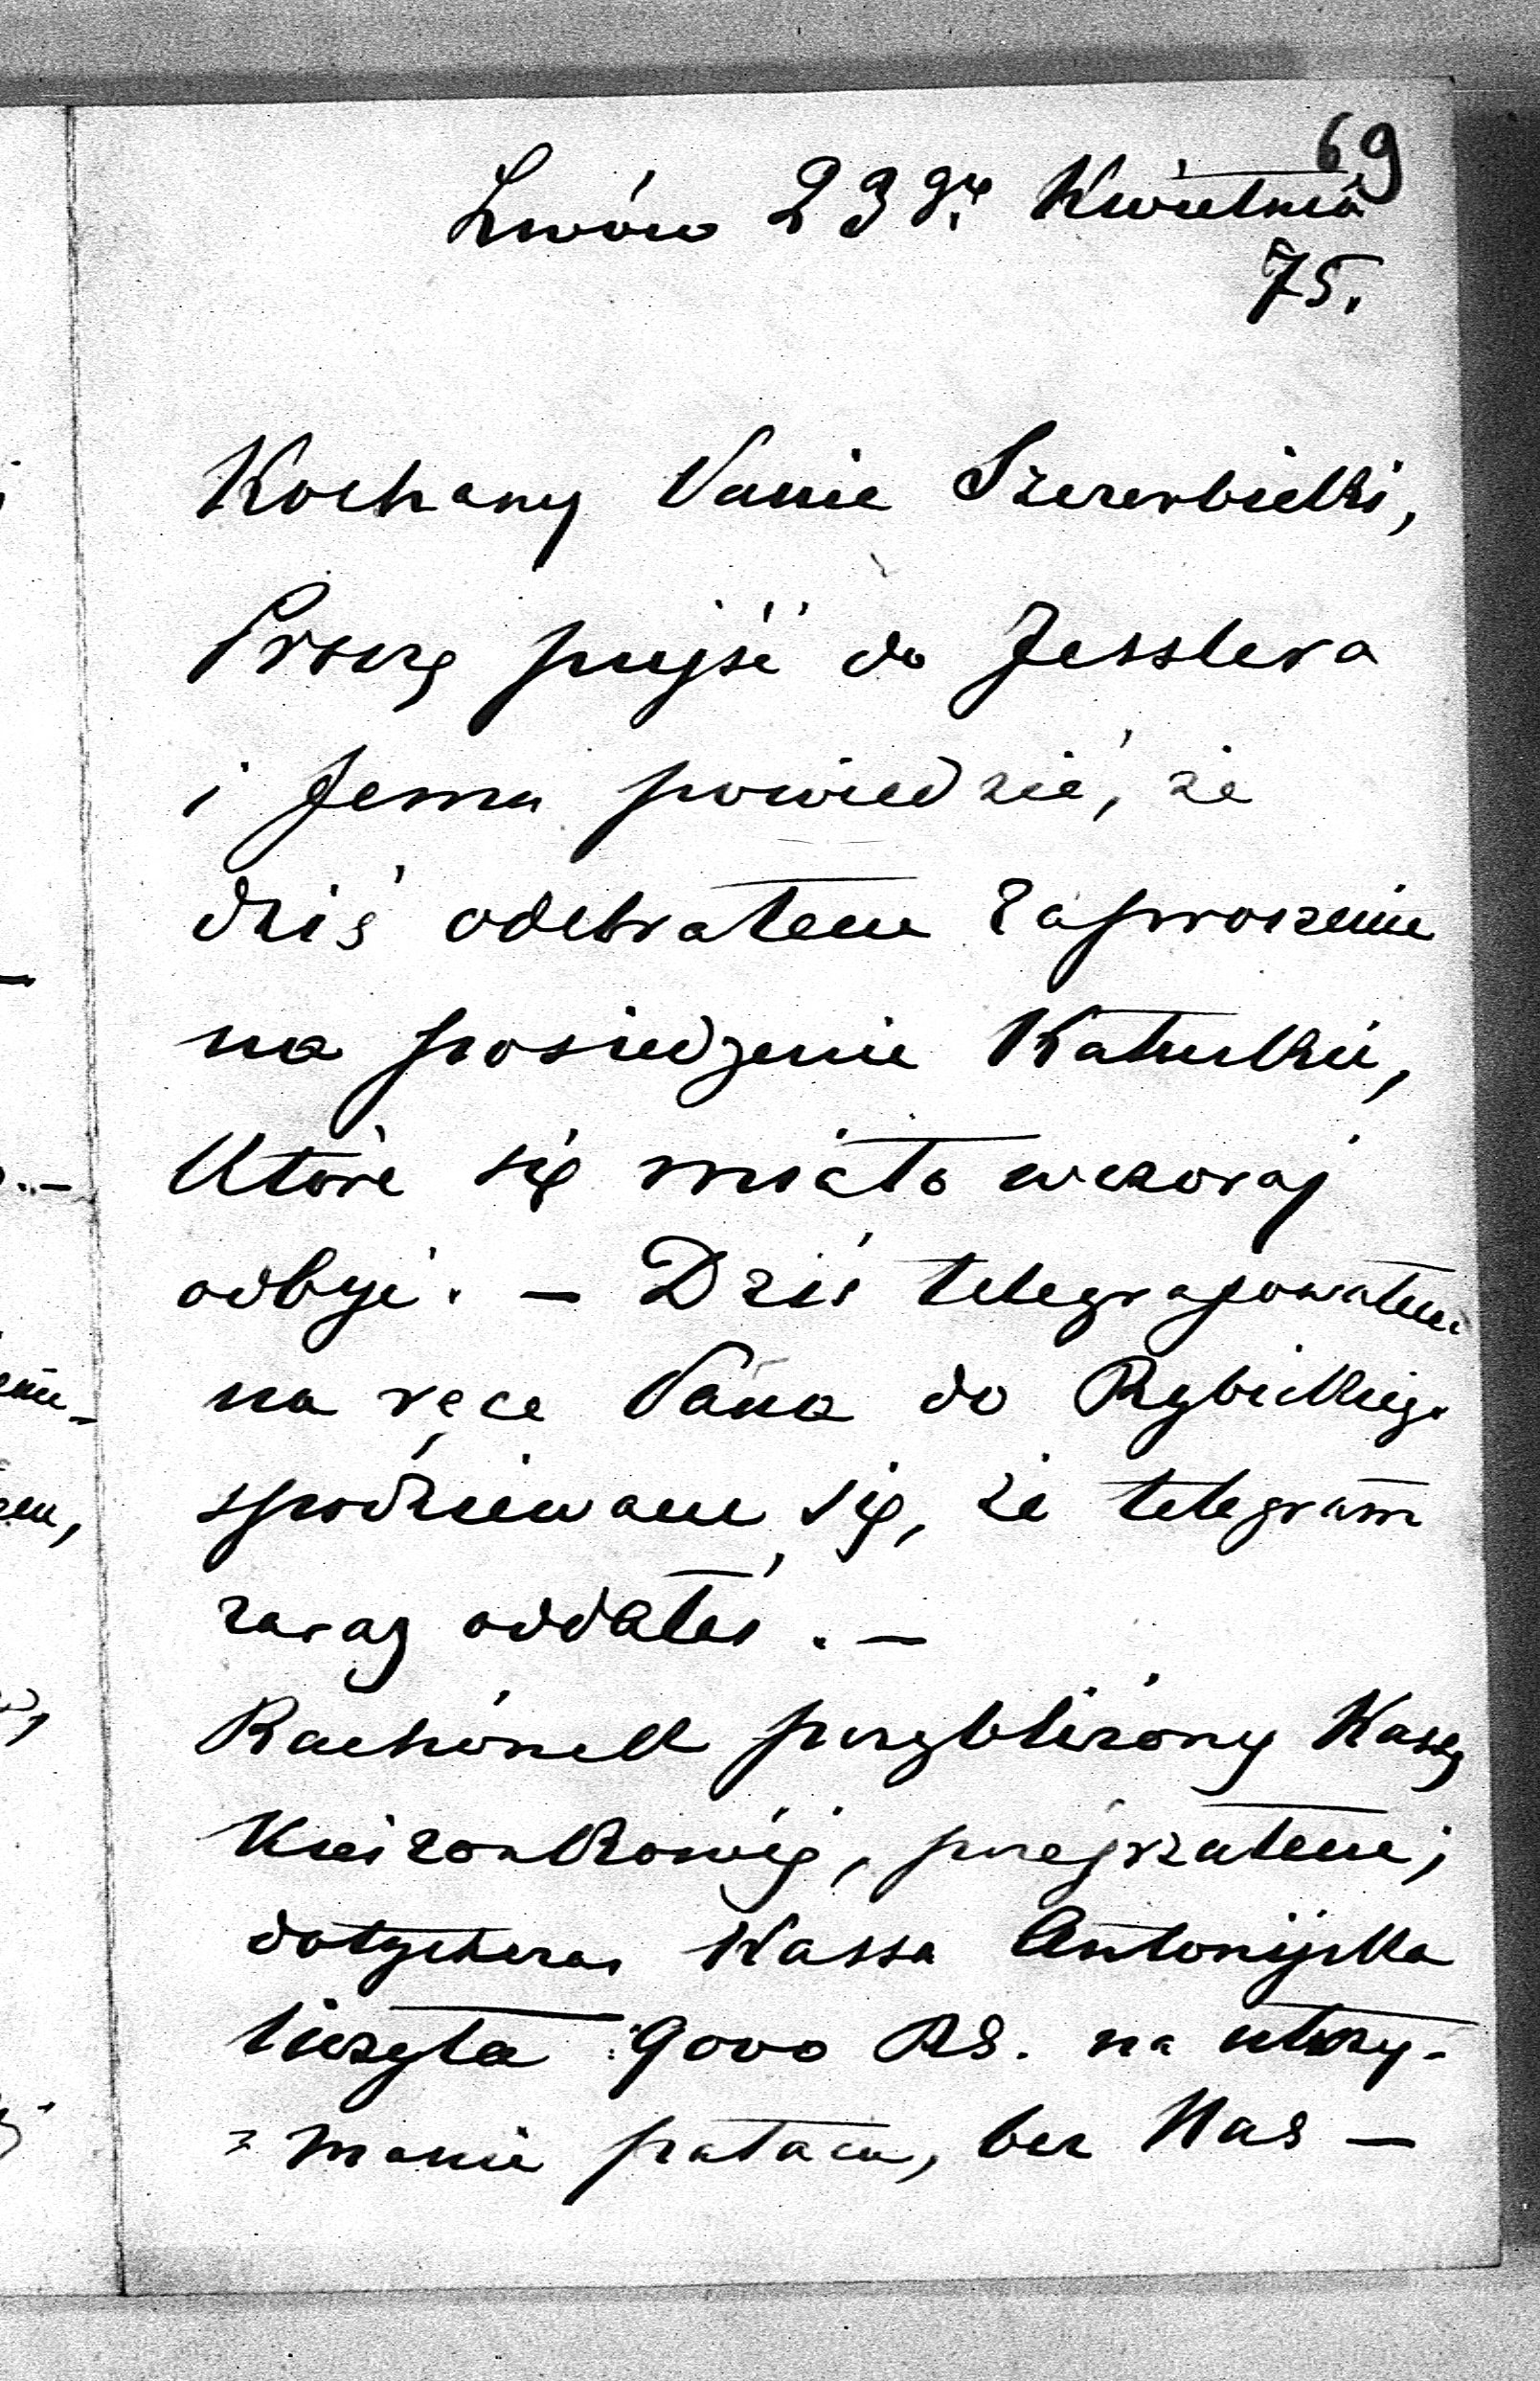 69
Lwów 23go Kwietnia
75.
Kochany Panie Szczerbicki,
Proszę pujść do Jesslera
i Jemu powiedzić, że
dziś odebrałem zaproszenie
na posiedzenie
które się miało wczoraj
odbyć. — Dziś telegrafowałem
na ręce Pana do Rybickiego
spodziewam się, że telegram
zaraz oddałeś. —
Rachónek przybliżony Kassy
Książkowéj, przejrzałem;
dotychczas Kassa Antonijska
liczyła 9000 RS. na utrzy-
=manie pałacu, bez Nas —